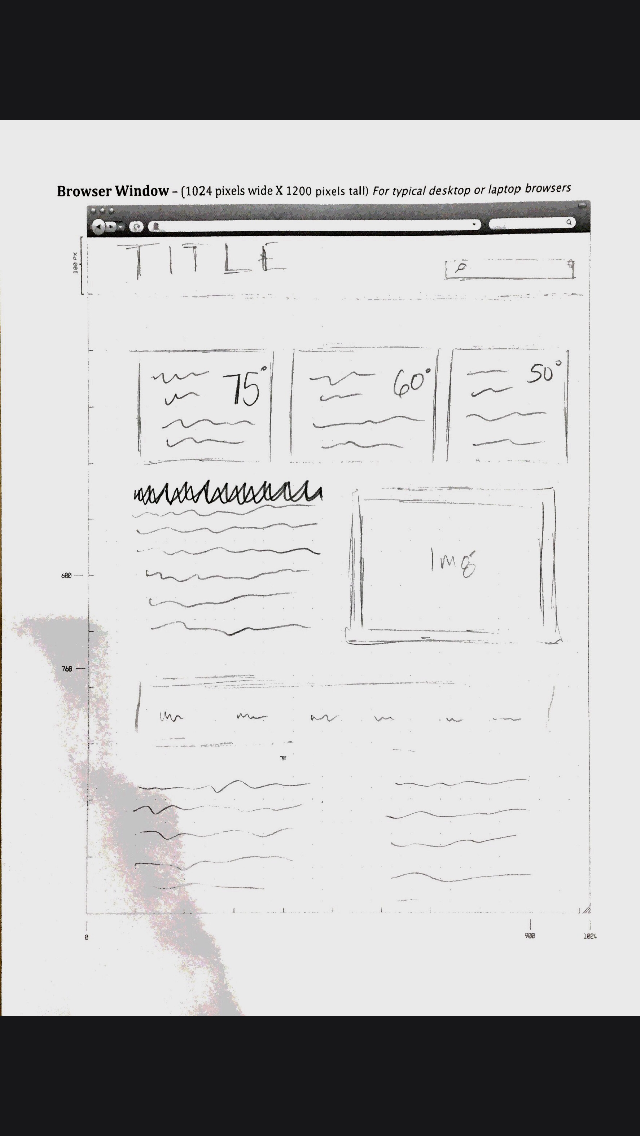 Browser Window – (1024 pixels wide X 1200 pixels tall) For typical desktop or laptop browsers
TITLE
100 PX
75° 60° 50°
Img
600
768
0 900 1024